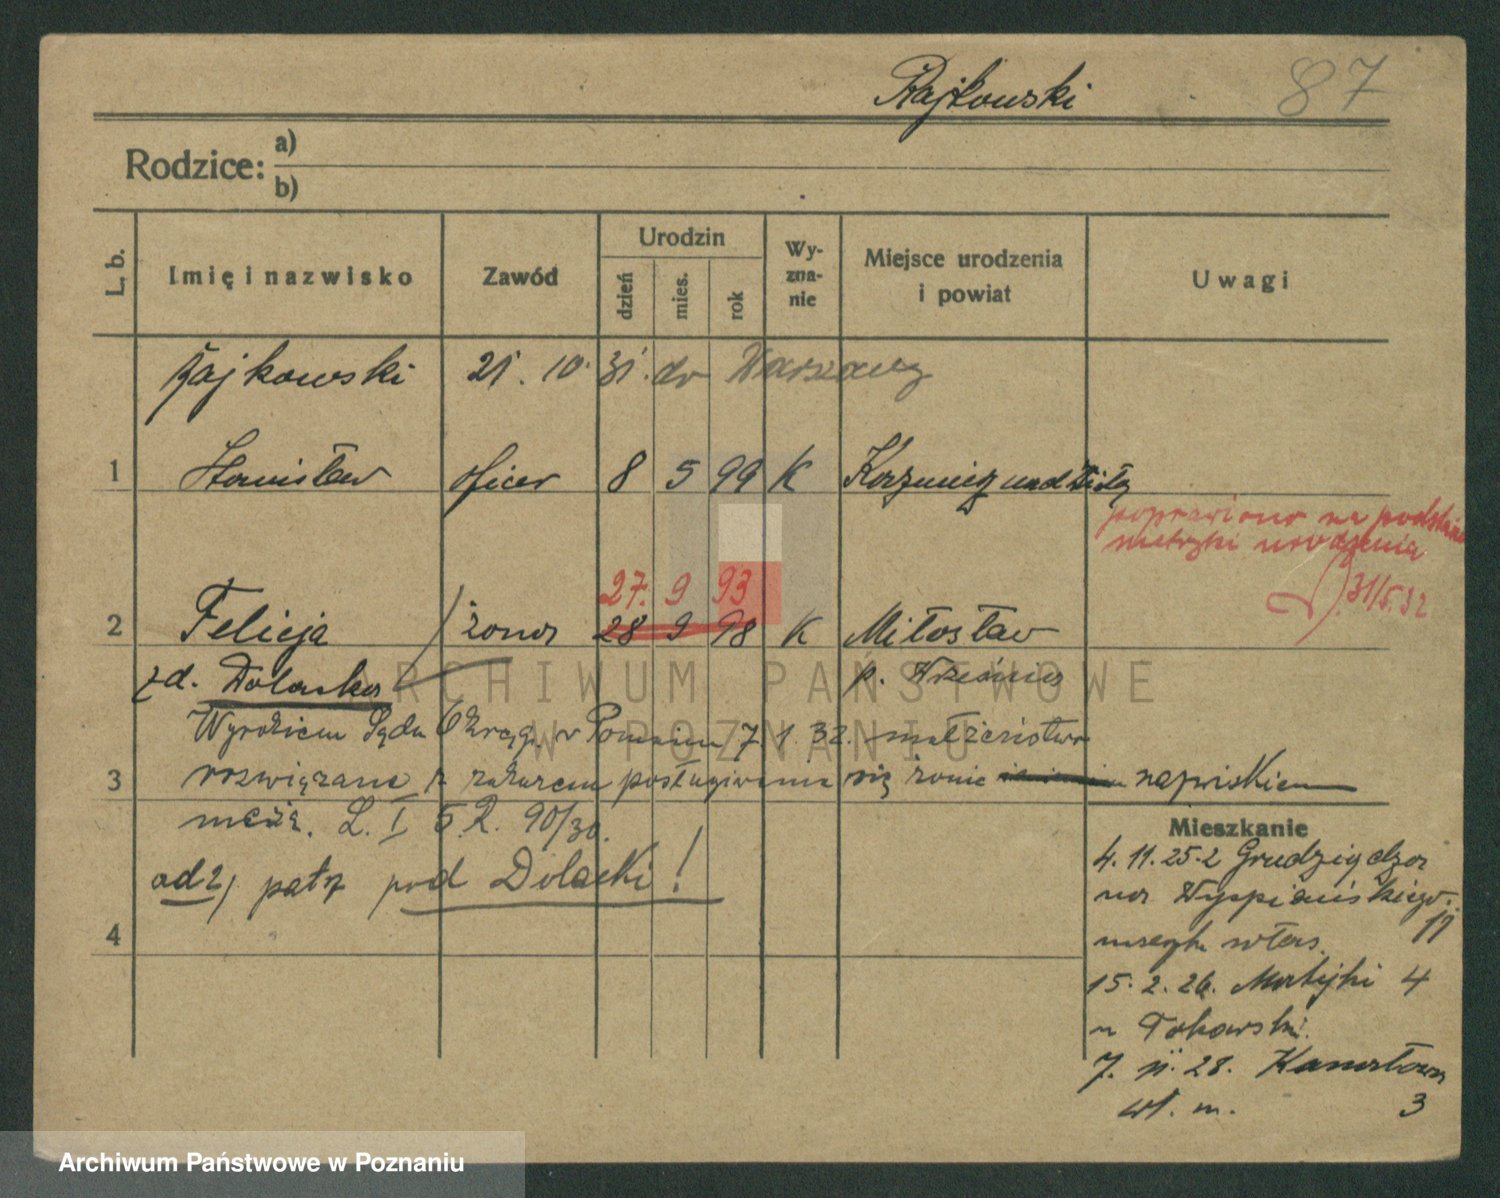 Rajkowski 87
Rodzice: a)
b)
L. b.
Imię i nazwisko
Zawód
Urodzin
dzień
mies.
rok
Wy-
zna-
nie
Miejsce urodzenia
i powiat
Uwagi
Rajkowski 21. 10. 31. do Warszawy
1 Stanisław oficer 8 5 99 K
poprawiono na podstawie
metryki urodzenia
31/5.32
27. 9 93
2 Felicja żona 28 9 98 K Miłosław
zd. Dolacka p. Września
Wyrokiem Sądu Okręg. w Poznaniu 7.1.32. małżeństwo
3 rozwiązane z zakazem posługiwania się żonie nazwiskiem
męża. L. I 5 R. 90/30.
ad 2) patrz pod Dolacki!
4
Mieszkanie
4. 11. 25. z Grudziądza
na Wyspiańskiego
11
15. 2. 26. Matejki 4
u Tokarski.
7. 11. 28. Kanałowa
wł. m. 3
ARCHIWUM PAŃSTWOWE
W POZNANIU
Archiwum Państwowe w Poznaniu